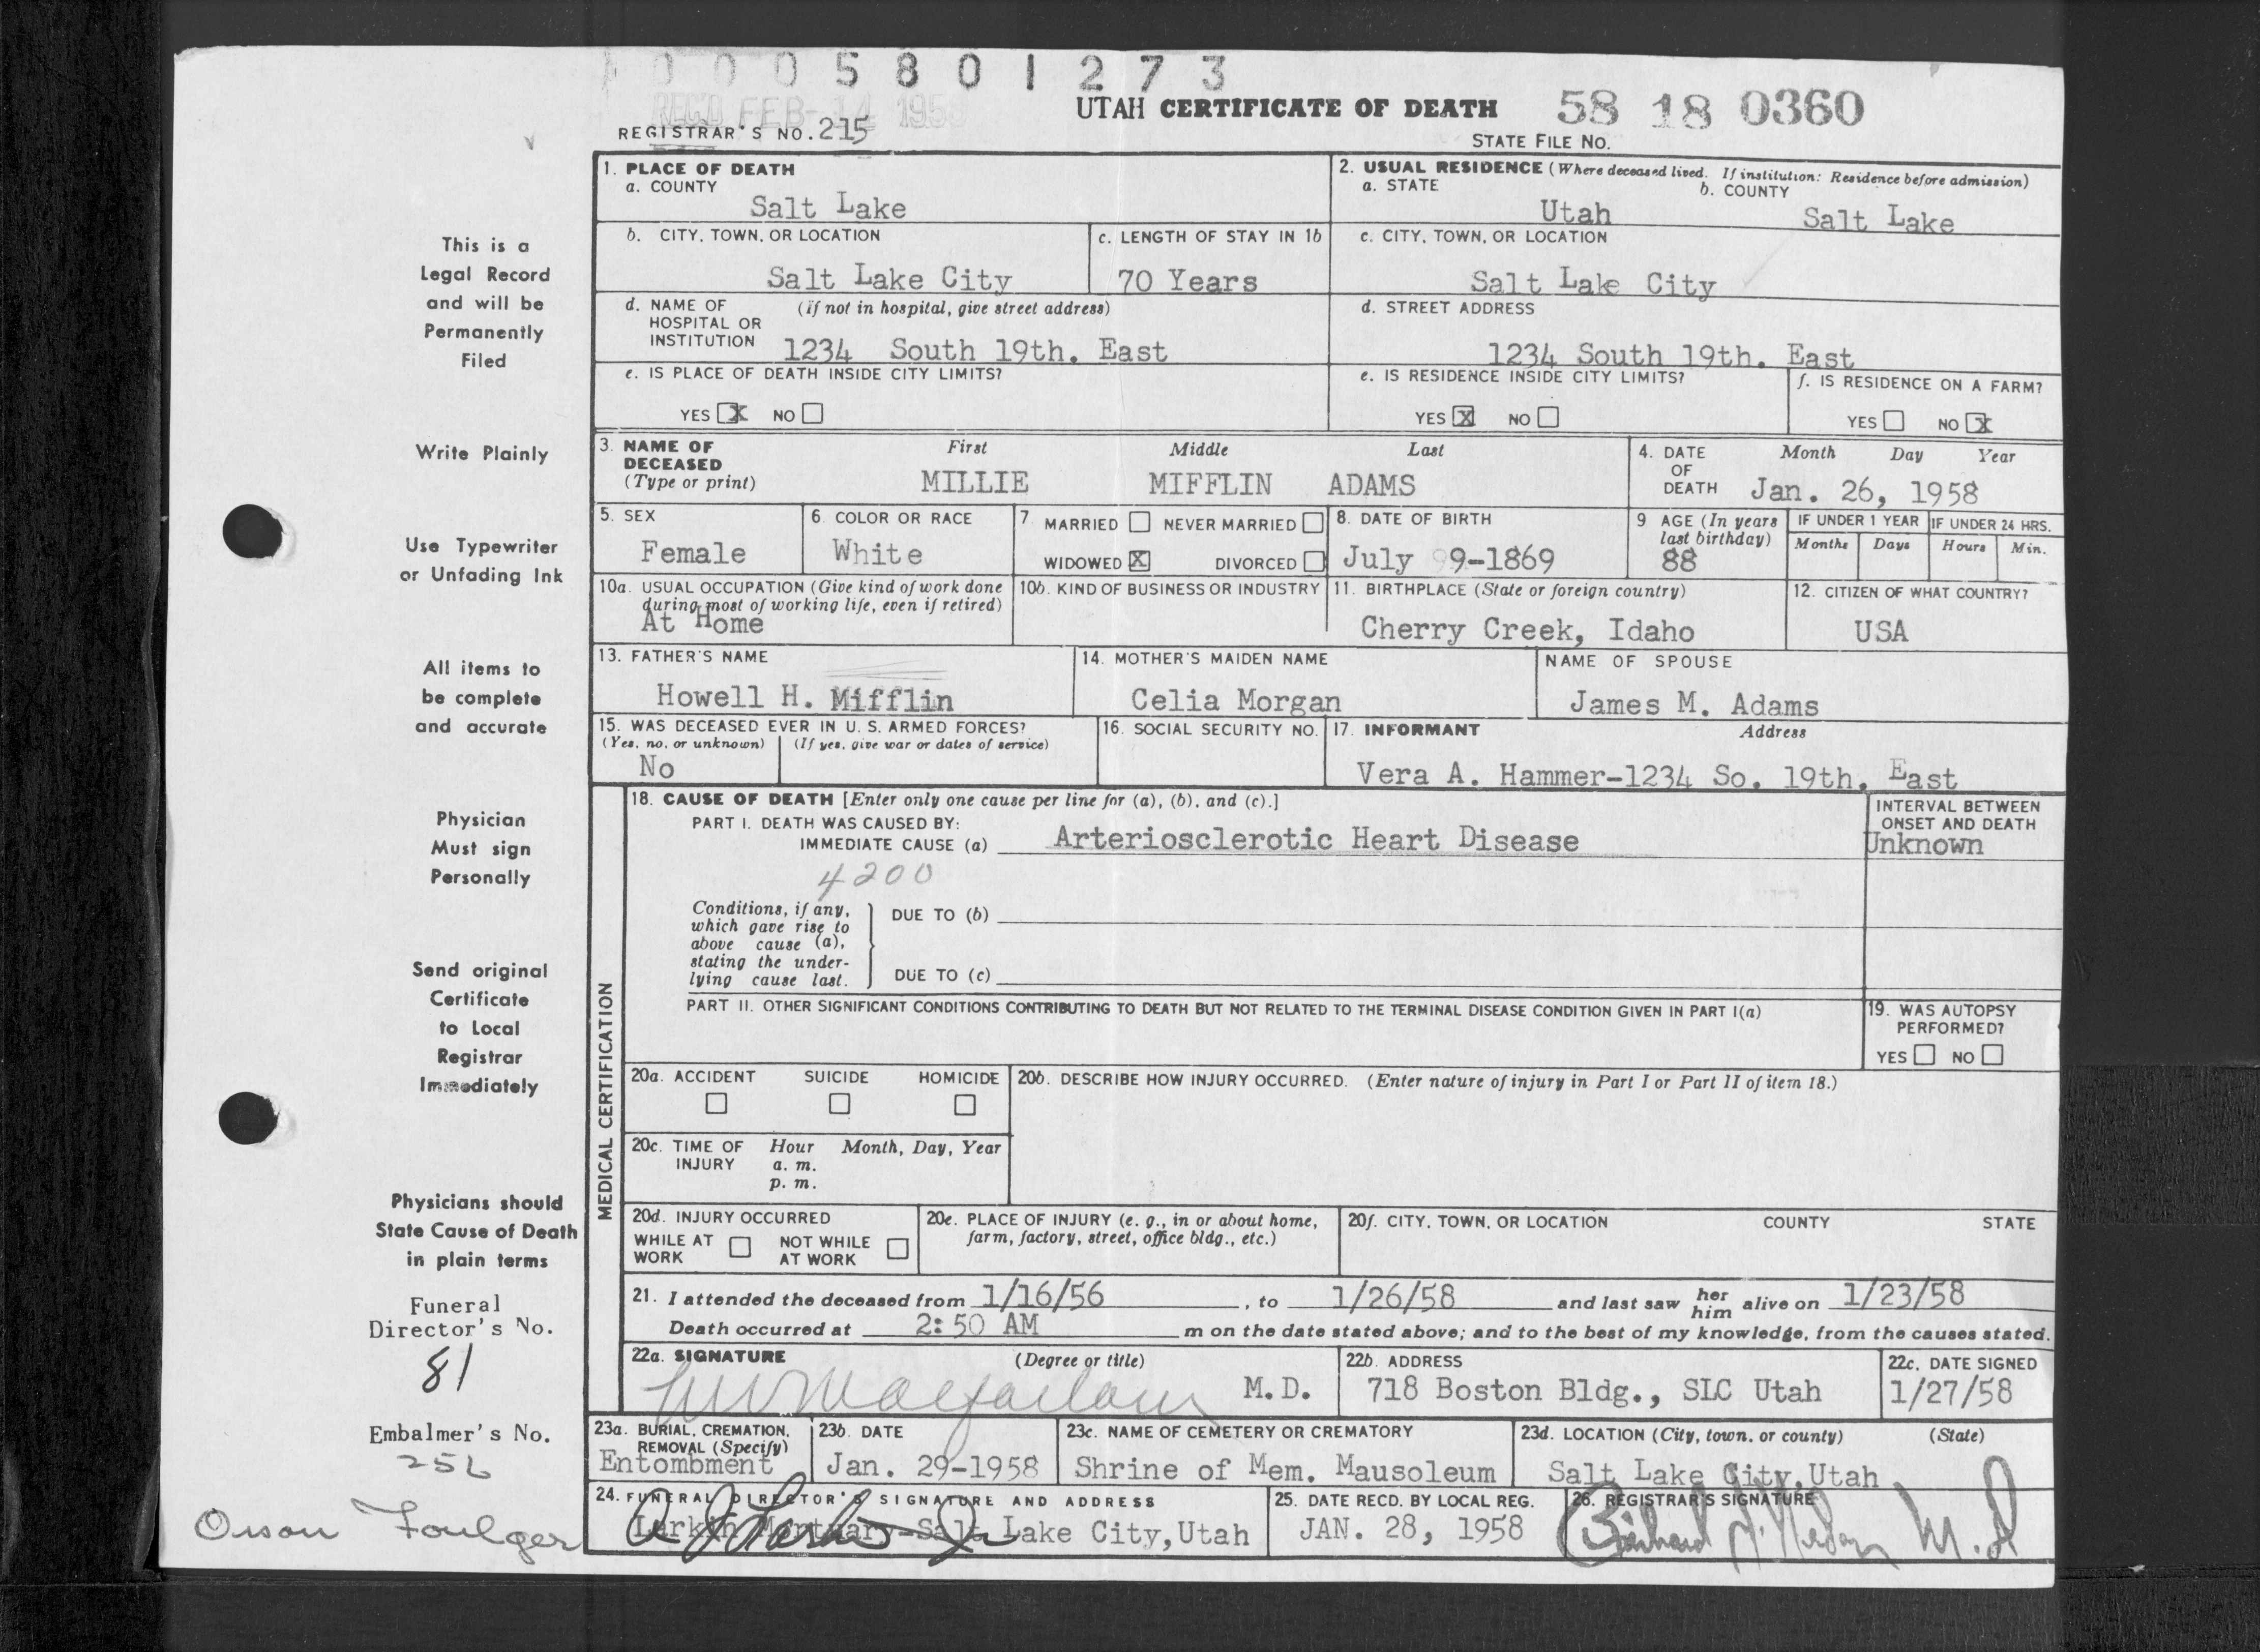 0005801273
REC'D FEB-14 195
UTAH CERTIFICATE OF DEATH 58 18 0360
REGISTRAR'S NO. 215
STATE FILE NO.
1. PLACE OF DEATH
a. COUNTY
Salt Lake
2. USUAL RESIDENCE (Where deceased lived. If institution: Residence before admission)
a. STATE b. COUNTY
Utah Salt Lake
b. CITY, TOWN, OR LOCATION
Salt Lake City
c. LENGTH OF STAY IN 1b
70 Years
c. CITY, TOWN, OR LOCATION
Salt Lake City
d. NAME OF HOSPITAL OR INSTITUTION (if not in hospital, give street address)
1234 South 19th. East
d. STREET ADDRESS
1234 South 19th. East
e. IS PLACE OF DEATH INSIDE CITY LIMITS?
YES X NO
e. IS RESIDENCE INSIDE CITY LIMITS?
YES X NO
f. IS RESIDENCE ON A FARM?
YES NO X
3. NAME OF DECEASED (Type or print)
First Middle Last
MILLIE MIFFLIN ADAMS
4. DATE OF DEATH Month Day Year
Jan. 26, 1958
5. SEX
Female
6 COLOR OR RACE
White
7 MARRIED NEVER MARRIED
WIDOWED X DIVORCED
8. DATE OF BIRTH
July 9-1869
9 AGE (In years last birthday)
88
IF UNDER 1 YEAR
Months Days
IF UNDER 24 HRS.
Hours Min.
10a. USUAL OCCUPATION (Give kind of work done during most of working life, even if retired)
At Home
10b. KIND OF BUSINESS OR INDUSTRY
11. BIRTHPLACE (State or foreign country)
Cherry Creek, Idaho
12. CITIZEN OF WHAT COUNTRY?
USA
13. FATHER'S NAME
Howell H. Mifflin
14. MOTHER'S MAIDEN NAME
Celia Morgan
NAME OF SPOUSE
James M. Adams
15. WAS DECEASED EVER IN U. S. ARMED FORCES?
(Yes, no, or unknown) (If yes, give war or dates of service)
No
16. SOCIAL SECURITY NO.
17. INFORMANT Address
Vera A. Hammer-1234 So. 19th. East
MEDICAL CERTIFICATION
18. CAUSE OF DEATH [Enter only one cause per line for (a), (b), and (c).]
PART I. DEATH WAS CAUSED BY:
IMMEDIATE CAUSE (a) Arteriosclerotic Heart Disease
INTERVAL BETWEEN ONSET AND DEATH
Unknown
4200
Conditions, if any, which gave rise to above cause (a), stating the underlying cause last.
DUE TO (b)
DUE TO (c)
PART II. OTHER SIGNIFICANT CONDITIONS CONTRIBUTING TO DEATH BUT NOT RELATED TO THE TERMINAL DISEASE CONDITION GIVEN IN PART I(a)
19. WAS AUTOPSY PERFORMED?
YES NO
20a. ACCIDENT SUICIDE HOMICIDE
20b. DESCRIBE HOW INJURY OCCURRED. (Enter nature of injury in Part I or Part II of item 18.)
20c. TIME OF INJURY Hour Month, Day, Year
a. m.
p. m.
20d. INJURY OCCURRED
WHILE AT WORK NOT WHILE AT WORK
20e. PLACE OF INJURY (e. g., in or about home, farm, factory, street, office bldg., etc.)
20f. CITY, TOWN, OR LOCATION COUNTY STATE
21. I attended the deceased from 1/16/56, to 1/26/58 and last saw her him alive on 1/23/58
Death occurred at 2:50 AM m on the date stated above; and to the best of my knowledge, from the causes stated.
22a. SIGNATURE (Degree or title)
Macfarlane M.D.
22b. ADDRESS
718 Boston Bldg., SLC Utah
22c. DATE SIGNED
1/27/58
23a. BURIAL, CREMATION, REMOVAL (Specify)
Entombment
23b. DATE
Jan. 29-1958
23c. NAME OF CEMETERY OR CREMATORY
Shrine of Mem. Mausoleum
23d. LOCATION (City, town, or county) (State)
Salt Lake City, Utah
24. FUNERAL DIRECTOR'S SIGNATURE AND ADDRESS
Larkin Mortuary-Salt Lake City, Utah
25. DATE RECD. BY LOCAL REG.
JAN. 28, 1958
26. REGISTRAR'S SIGNATURE
M.D
This is a
Legal Record
and will be
Permanently
Filed
Write Plainly
Use Typewriter
or Unfading Ink
All items to
be complete
and accurate
Physician
Must sign
Personally
Send original
Certificate
to Local
Registrar
Immediately
Physicians should
State Cause of Death
in plain terms
Funeral
Director's No.
81
Embalmer's No.
256
Orson Foulger